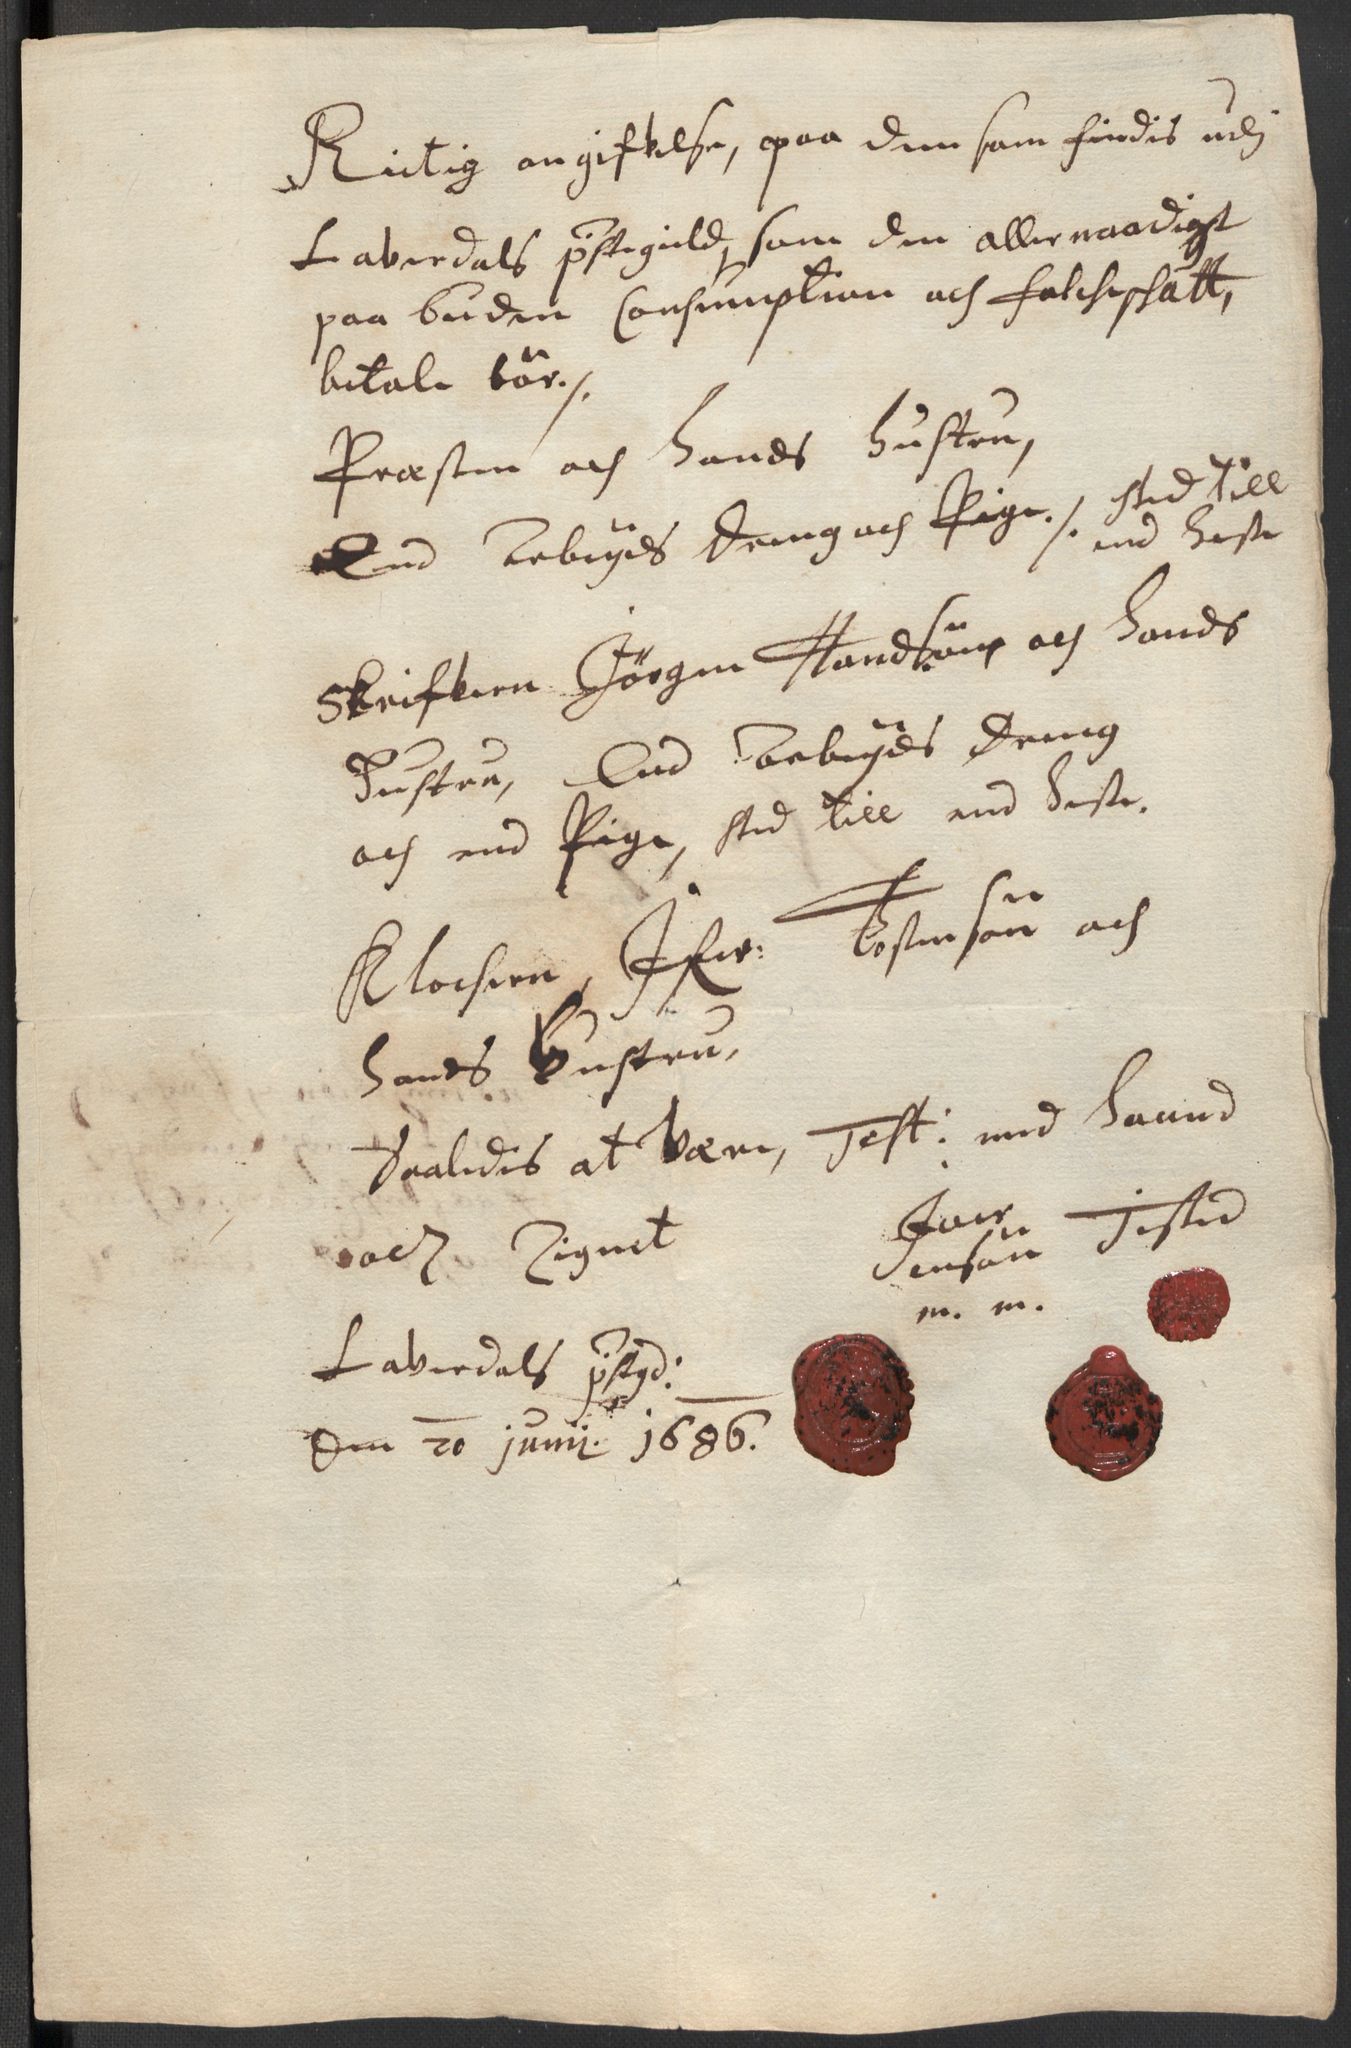 Rictig angifvelse, paa dem som findis udj
Laverdals pstegield, som den allernaadigst
paa buden Consumption och folcheschatt,
betale bör ./.
Præsten och hands hustru,
End arbeyds Dreng och Pige ./. sted till
end hest
Skrifveren Jörgen Handsöns och hands
Hustru, End arbeyds Dreng
och end Pige, sted till end hest.
Klocheren, Ifver: Tostensön och
hands hustru,
Saaledis at være, Test: med haand
och Zignet
Joen
Jensön Tisted
m. m.
Laverdals pstgd:
den 20 junij. 1686.